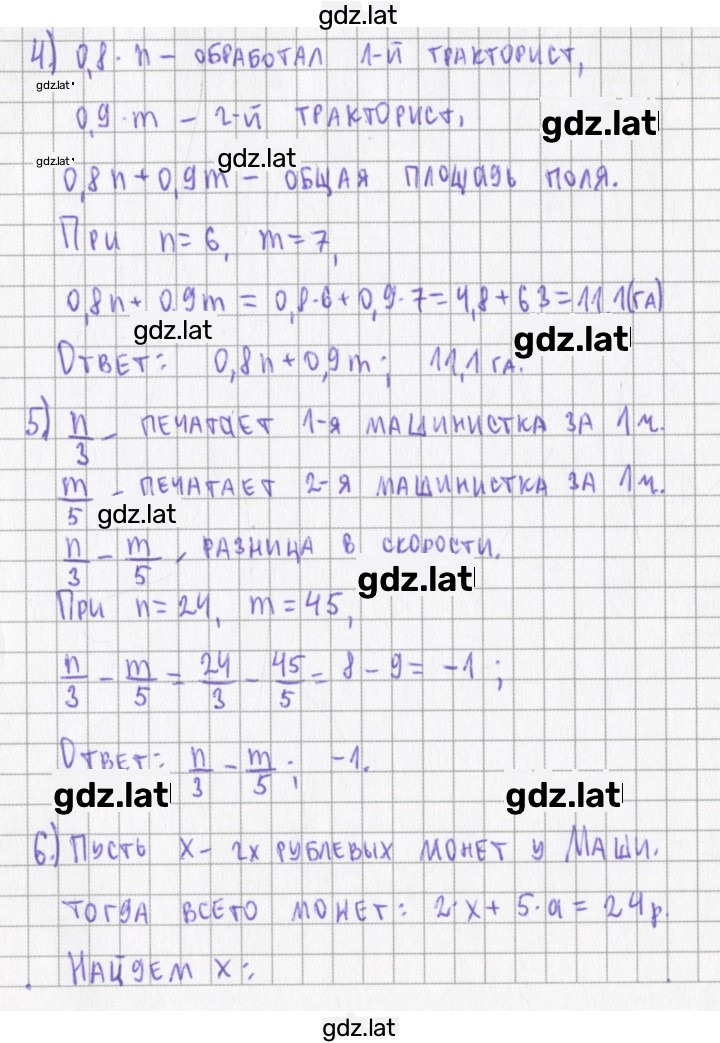 gdz.lat
4) 0,8·n – ОБРАБОТАЛ 1-Й ТРАКТОРИСТ,
gdz.lat
0,9·m – 2-Й ТРАКТОРИСТ, gdz.lat
gdz.lat gdz.lat
0,8n + 0,9m – ОБЩАЯ ПЛОЩАДЬ ПОЛЯ.
ПРИ n = 6, m = 7,
0,8n + 0,9m = 0,8·6 + 0,9·7 = 4,8 + 6 3 = 11 1(ГА)
gdz.lat gdz.lat
ОТВЕТ: 0,8n + 0,9m; 11,1 ГА.
5) n/3 – ПЕЧАТАЕТ 1-Я МАШИНИСТКА ЗА 1 Ч.
m/5 – ПЕЧАТАЕТ 2-Я МАШИНИСТКА ЗА 1 Ч.
gdz.lat
n/3 – m/5 – РАЗНИЦА В СКОРОСТИ.
gdz.lat
ПРИ n = 24, m = 45,
n/3 – m/5 = 24/3 – 45/5 = 8 – 9 = –1;
ОТВЕТ: n/3 – m/5; –1.
gdz.lat gdz.lat
6.) ПУСТЬ X – 2Х РУБЛЕВЫХ МОНЕТ У МАШИ.
ТОГДА ВСЕГО МОНЕТ: 2·x + 5·a = 24 р.
НАЙДЕМ X:
gdz.lat